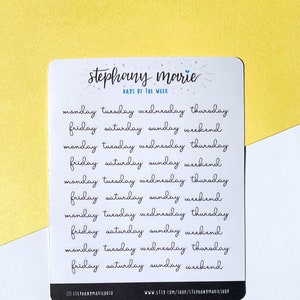 stephany marie
DAYS OF THE WEEK
monday tuesday wednesday thursday
friday saturday sunday weekend
monday tuesday wednesday thursday
friday saturday sunday weekend
monday tuesday wednesday thursday
friday saturday sunday weekend
monday tuesday wednesday thursday
friday saturday sunday weekend
monday tuesday wednesday thursday
friday saturday sunday weekend